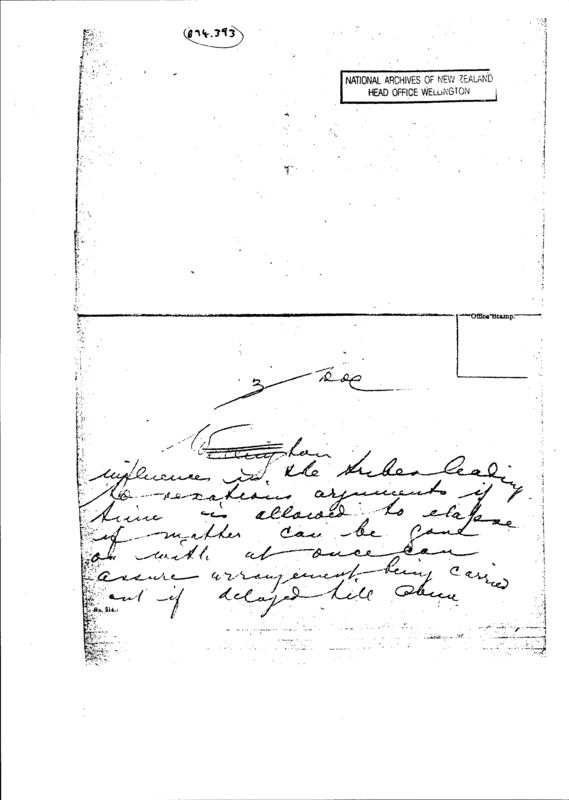 874.393
NATIONAL ARCHIVES OF NEW ZEALAND
HEAD OFFICE WELLINGTON
Office Stamp.
3
Wellington
influences in the tribes leading
to vexatious arguments if
time is allowed to elapse
if matter can be gone
on with at once can
assure arrangement being carried
out if delayed till